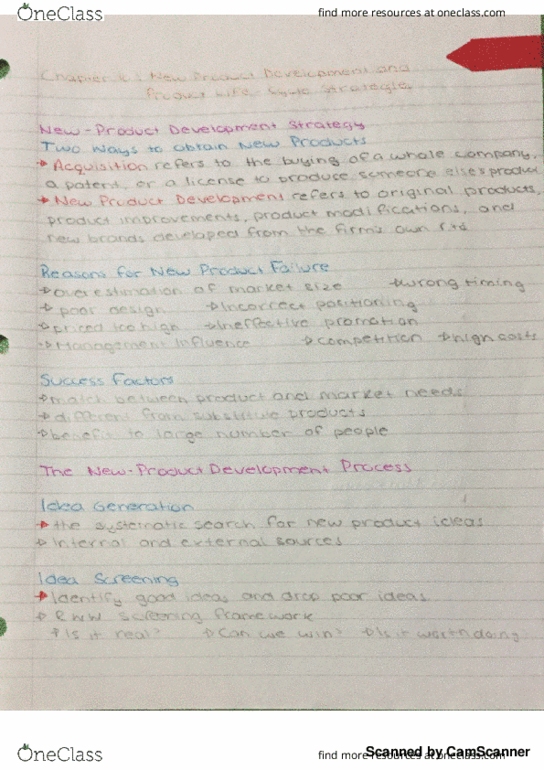 OneClass
find more resources at oneclass.com
New Product Development and
Product Life-Cycle Strategies
New-Product Development Strategy
Two ways to obtain New Products
→ Acquisition refers to the buying of a whole company,
a patent, or a license to produce someone else's product
→ New Product Development refers to original products,
product improvements, product modifications, and
new brands developed from the firm's own r+d
Reasons for New Product Failure
→ overestimation of market size → wrong timing
→ poor design → Incorrect positioning
→ priced too high → Ineffective promotion
→ Management Influence → competition → high costs
Success Factors
→ match between product and market needs
→ different from substitute products
→ benefit to large number of people
The New-Product Development Process
Idea Generation
→ the systematic search for new product ideas
→ Internal and external sources
Idea Screening
→ Identify good ideas and drop poor ideas
→ RWW Screening framework
→ Is it real? → Can we win? → Is it worth doing
OneClass
find more resources at oneclass.com
Scanned by CamScanner